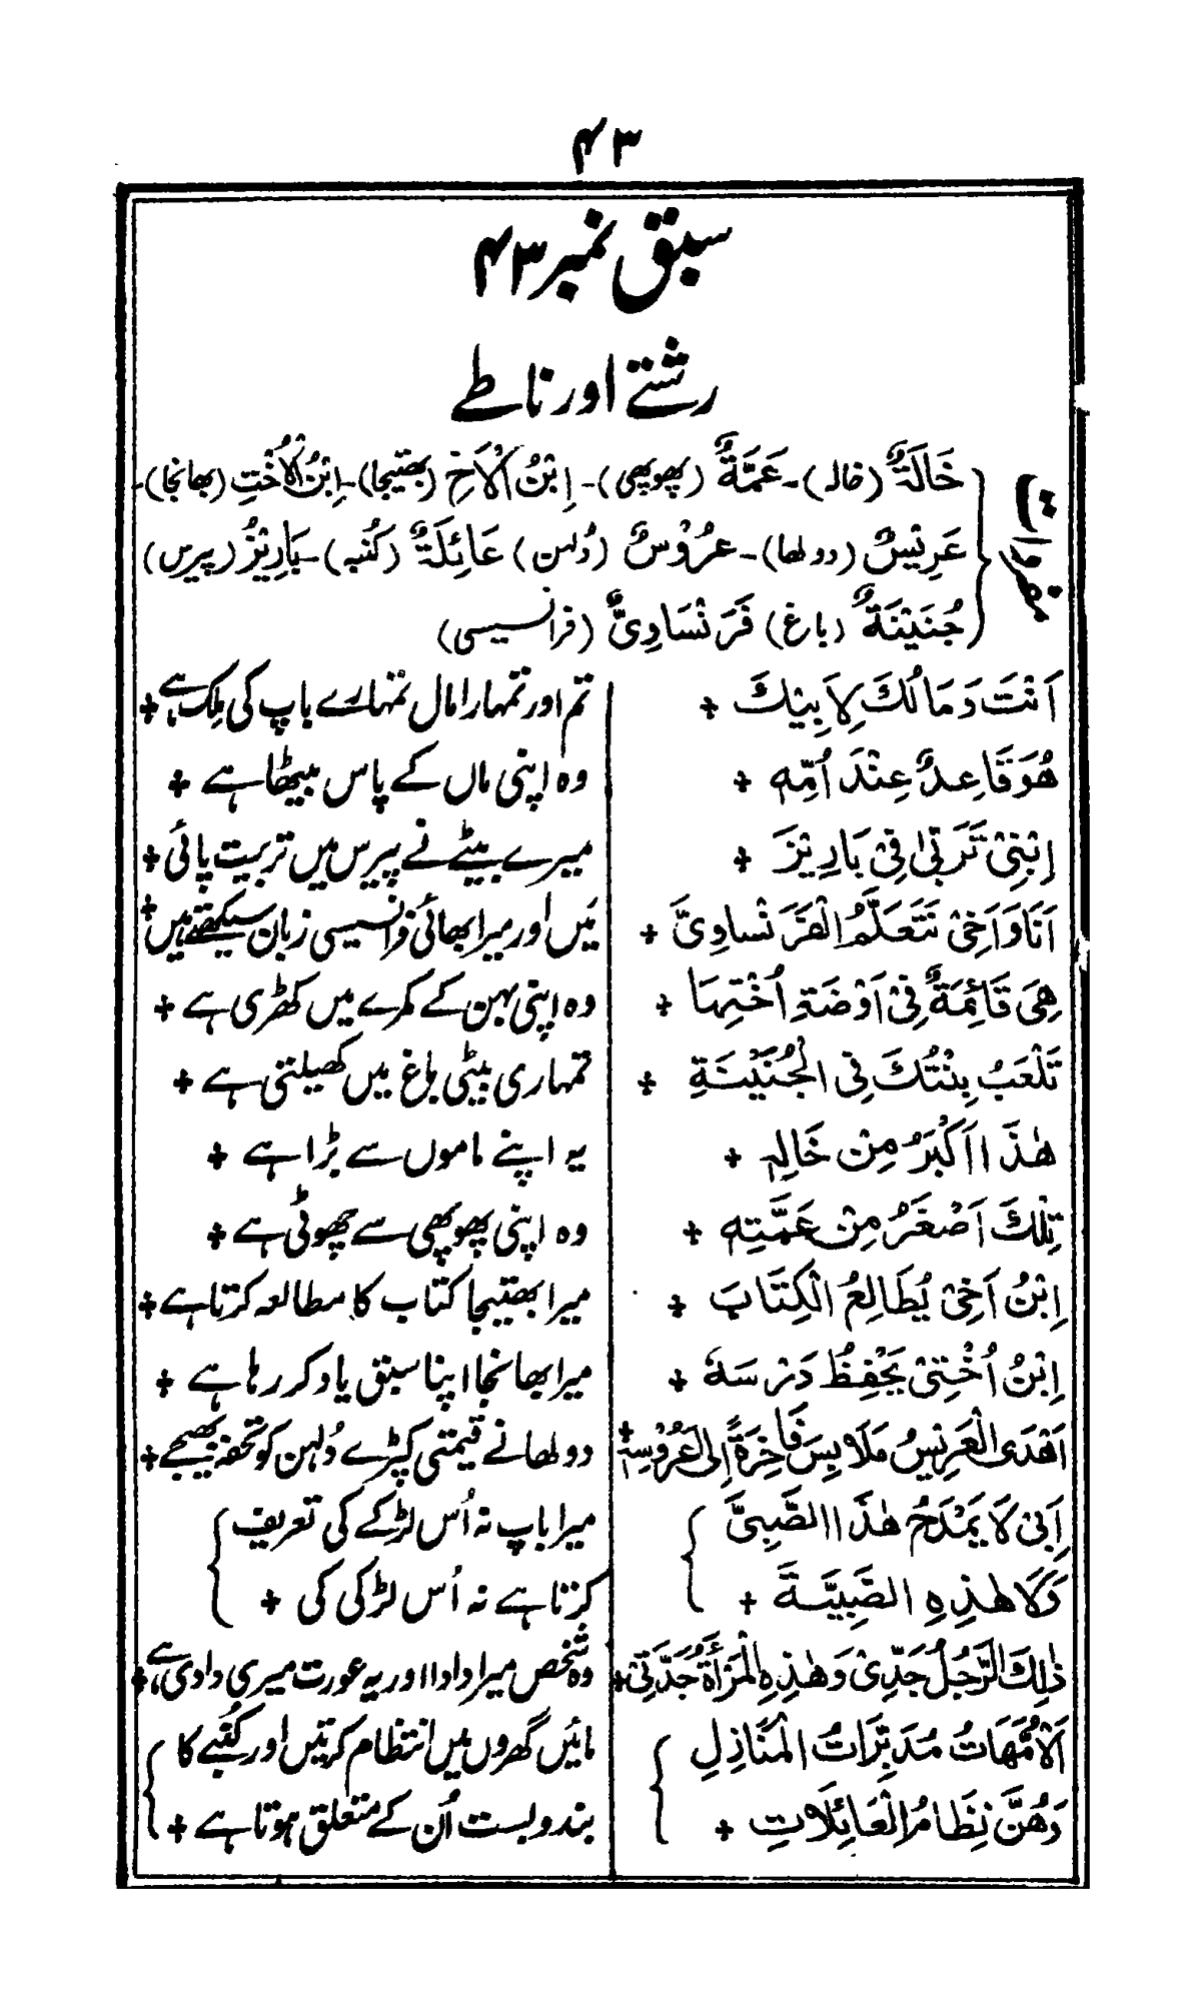 ۴۳
سبق نمبر ۴۳
رشتے اور ناطے
مفردات
خَالَةٌ (خالہ)۔ عَمَّةٌ (پھوپھی)۔ اِبْنُ الْاَخِ (بھتیجا)۔ اِبْنُ الْاُخْتِ (بھانجا)۔
عَرِيْسٌ (دولھا)۔ عُرُوْسٌ (دُلہن) عَائِلَةٌ (کُنبہ)۔ بَارِيْزُ (پیرس)
جُنَيْنَةٌ (باغ) فَرَنْسَاوِىٌّ (فرانسیسی)
اَنْتَ وَمَالُكَ لِاَبِيْكَ + تم اور تمہارا مال تمہارے باپ کی مِلک ہے +
هُوَ قَاعِدٌ عِنْدَ اُمِّهٖ + وہ اپنی ماں کے پاس بیٹھا ہے +
اِبْنِىْ تَرَبّٰى فِىْ بَارِيْزَ + میرے بیٹے نے پیرس میں تربیت پائی +
اَنَا وَاَخِىْ نَتَعَلَّمُ الْفَرَنْسَاوِىَّ + مَیں اور میرا بھائی فرانسیسی زبان سیکھتے ہیں +
هِىَ قَائِمَةٌ فِىْ اَوْضَةِ اُخْتِهَا + وہ اپنی بہن کے کمرے میں کھڑی ہے +
تَلْعَبُ بِنْتُكَ فِى الْجُنَيْنَةِ + تمہاری بیٹی باغ میں کھیلتی ہے +
هٰذَا اَكْبَرُ مِنْ خَالِهٖ + یہ اپنے ماموں سے بڑا ہے +
تِلْكَ اَصْغَرُ مِنْ عَمَّتِهٖ + وہ اپنی پھوپھی سے چھوٹی ہے +
اِبْنُ اَخِىْ يُطَالِعُ الْكِتَابَ + میرا بھتیجا کتاب کا مطالعہ کرتا ہے +
اِبْنُ اُخْتِىْ يَحْفِظُ دَرْسَهٗ + میرا بھانجا اپنا سبق یاد کر رہا ہے +
اَهْدَى الْعَرِيْسُ مَلَابِسَ فَاخِرَةً اِلَى الْعُرُوْسِهٖ + دولھا نے قیمتی کپڑے دُلہن کو تحفہ بھیجے +
اَبِىْ لَا يَمْدَحُ هٰذَا الصَّبِىَّ میرا باپ نہ اُس لڑکے کی تعریف
وَلَا هٰذِهِ الصَّبِيَّةَ + کرتا ہے نہ اُس لڑکی کی +
ذٰلِكَ الرَّجُلُ جَدِّىْ وَهٰذِهِ الْمَرْأَةُ جَدَّتِىْ + وہ شخص میرا دادا اور یہ عورت میری دادی ہے +
اَلْاُمَّهَاتُ مُدَبِّرَاتُ الْمَنَازِلِ مائیں گھروں میں انتظام کرتیں اور کنبے کا
وَهُنَّ نِظَامُ الْعَائِلَاتِ + بندوبست اُن کے متعلق ہوتا ہے +